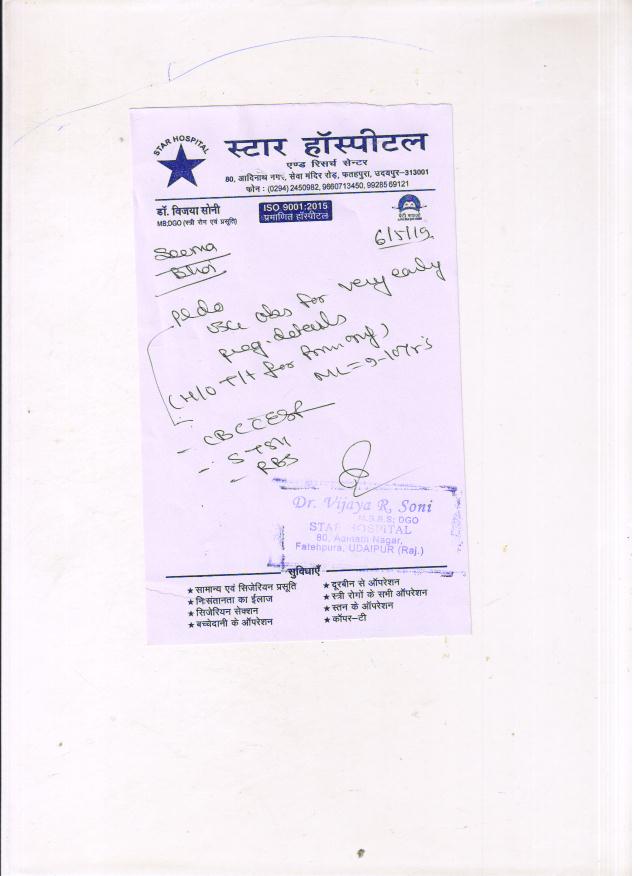 STAR HOSPITAL
स्टार हॉस्पीटल
एण्ड रिसर्च सेन्टर
80, आदिनाथ नगर, सेवा मंदिर रोड़, फतहपुरा, उदयपुर-313001
फोन : (0294) 2450982, 9660713450, 99285 69121
डॉ. विजया सोनी
MB;DGO (स्त्री रोग एवं प्रसूति)
ISO 9001:2015
प्रमाणित हॉस्पीटल
6/5/19
Seema
Bhoi
Pl do
USG obs for very early
preg. details
(H/O T/t for
ML = 9-10 Yr's
- CBC C ESR
- S TSH
- RBS
Dr. Vijaya R, Soni
M.B.B.S; DGO
STAR HOSPITAL
80, Adinath Nagar,
Fatehpura, UDAIPUR (Raj.)
सुविधाएँ
★ सामान्य एवं सिजेरियन प्रसूति
★ निःसंतानता का ईलाज
★ सिजेरियन सेक्शन
★ बच्चेदानी के ऑपरेशन
★ दूरबीन से ऑपरेशन
★ स्त्री रोगों के सभी ऑपरेशन
★ स्तन के ऑपरेशन
★ कॉपर-टी